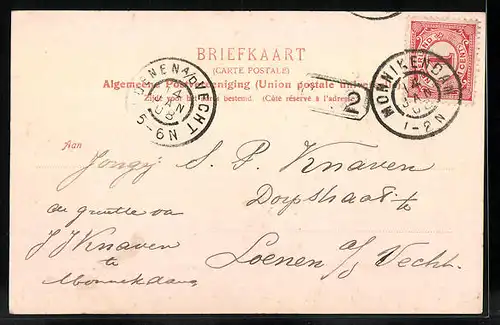 BRIEFKAART
(CARTE POSTALE)
Algemeene Postvereeniging (Union postale universelle)
Zijde voor het adres bestemd. (Côté réservé à l'adresse)
LOENEN A/D VECHT
14
JAN
08
5-6N
2
MONNIKENDAM
14
JAN
08
1-2N
1
Aan
Jongj S. P. Knaven
Dorpstraat
Loenen a/d Vecht.
de groete va
J J Knaven
te
Monnekdam